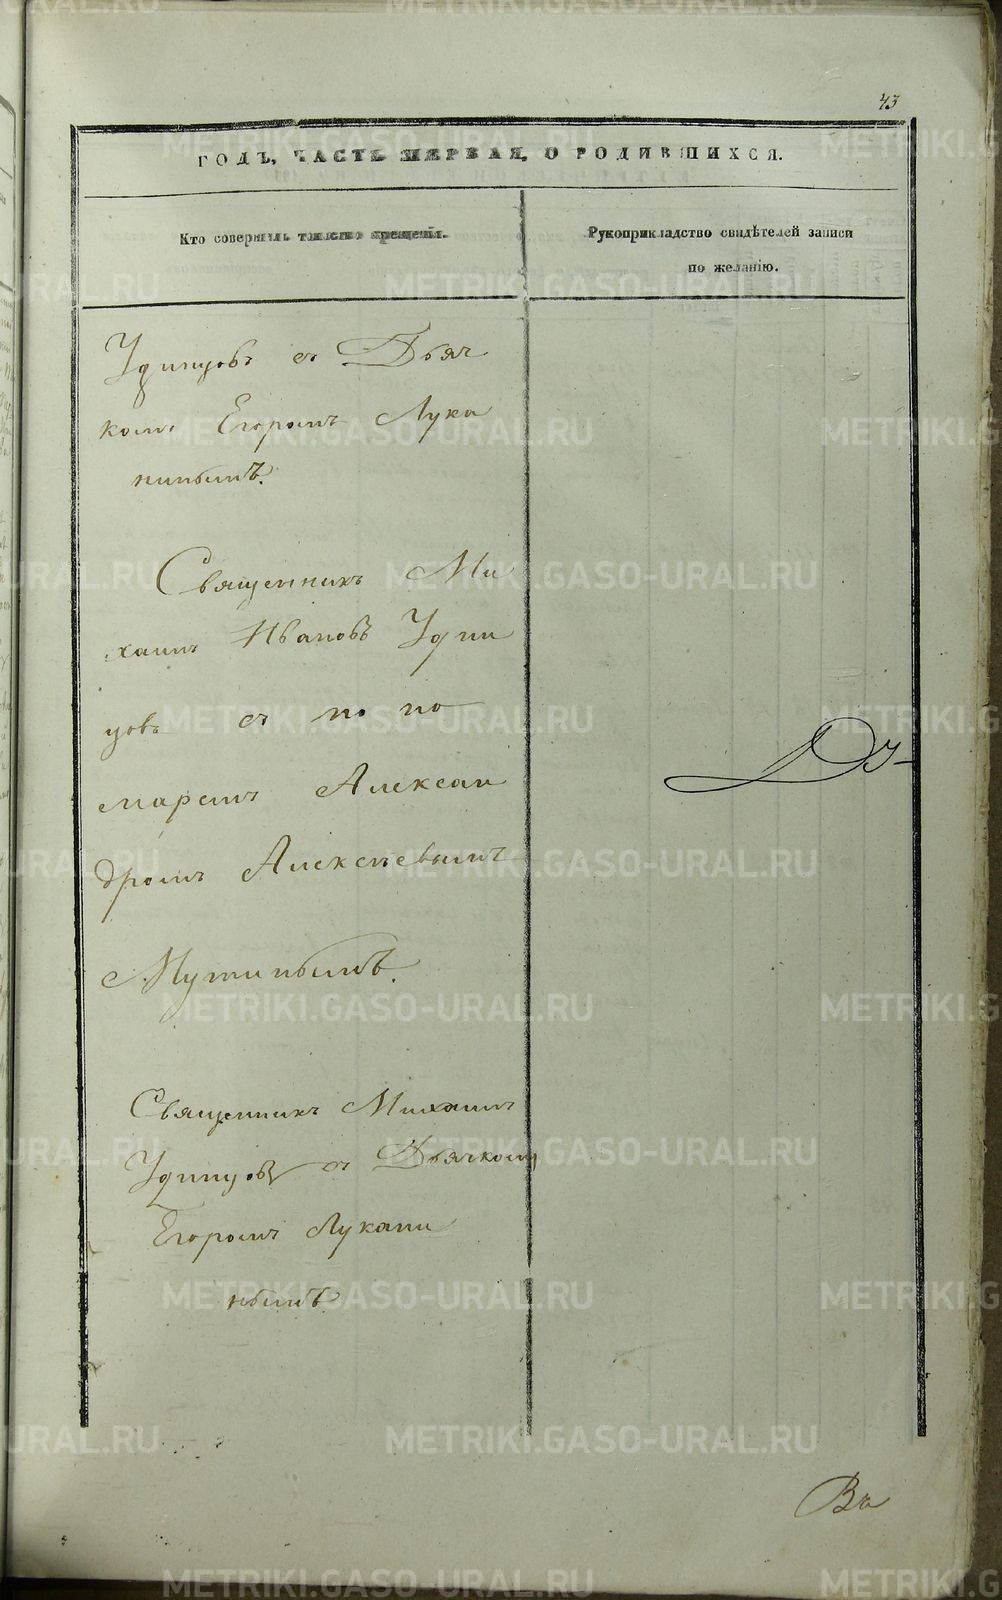 43
ГОДЪ, ЧАСТЬ ПЕРВАЯ, О РОДИВШИХСЯ.
Кто совершалъ таинство крещенія.
Рукоприкладство свидѣтелей записи
по желанію.
Удинцовъ съ Дьяч
комъ Егоромъ Лука
нинымъ.
Священникъ Ми
хаилъ Ивановъ Удин
цовъ съ по но
маремъ Алексан
дромъ Алексѣевымъ
Мутинымъ.
Священникъ Михаилъ
Удинцовъ съ Дьячкомъ
Егоромъ Лукани
нымъ.
Въ
METRIKI.GASO-URAL.RU